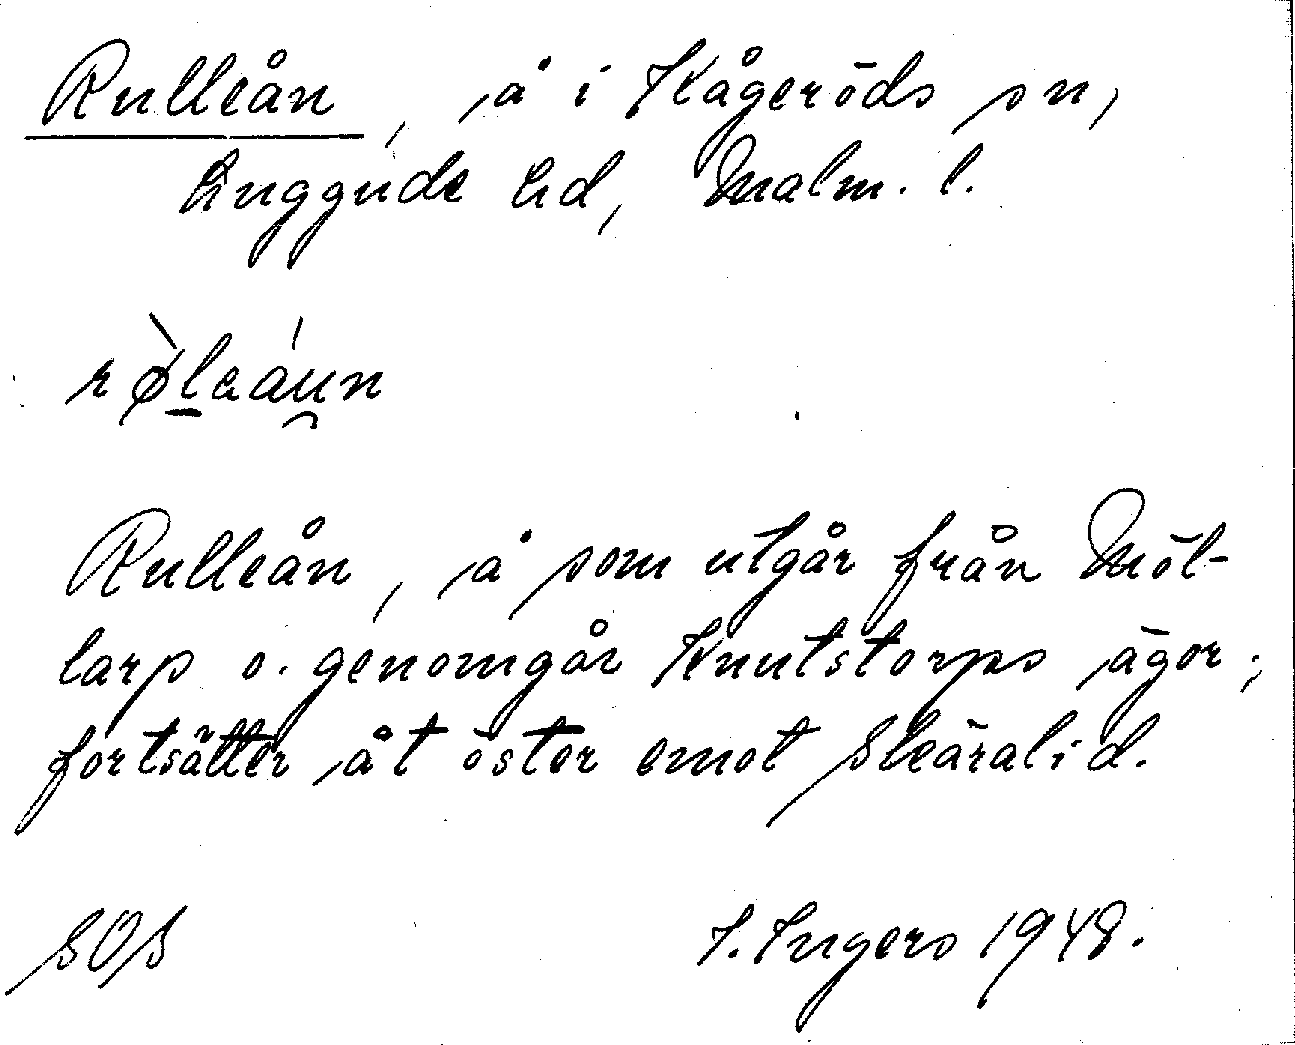 Rulleån, å i Kågeröds sn,
Luggude hd, Malm. l.
Rulleån, å som utgår från Möl-
larp o. genomgår Knutstorps ägor;
fortsätter åt öster emot Skäralid.
SOS I. Ingers 1948.